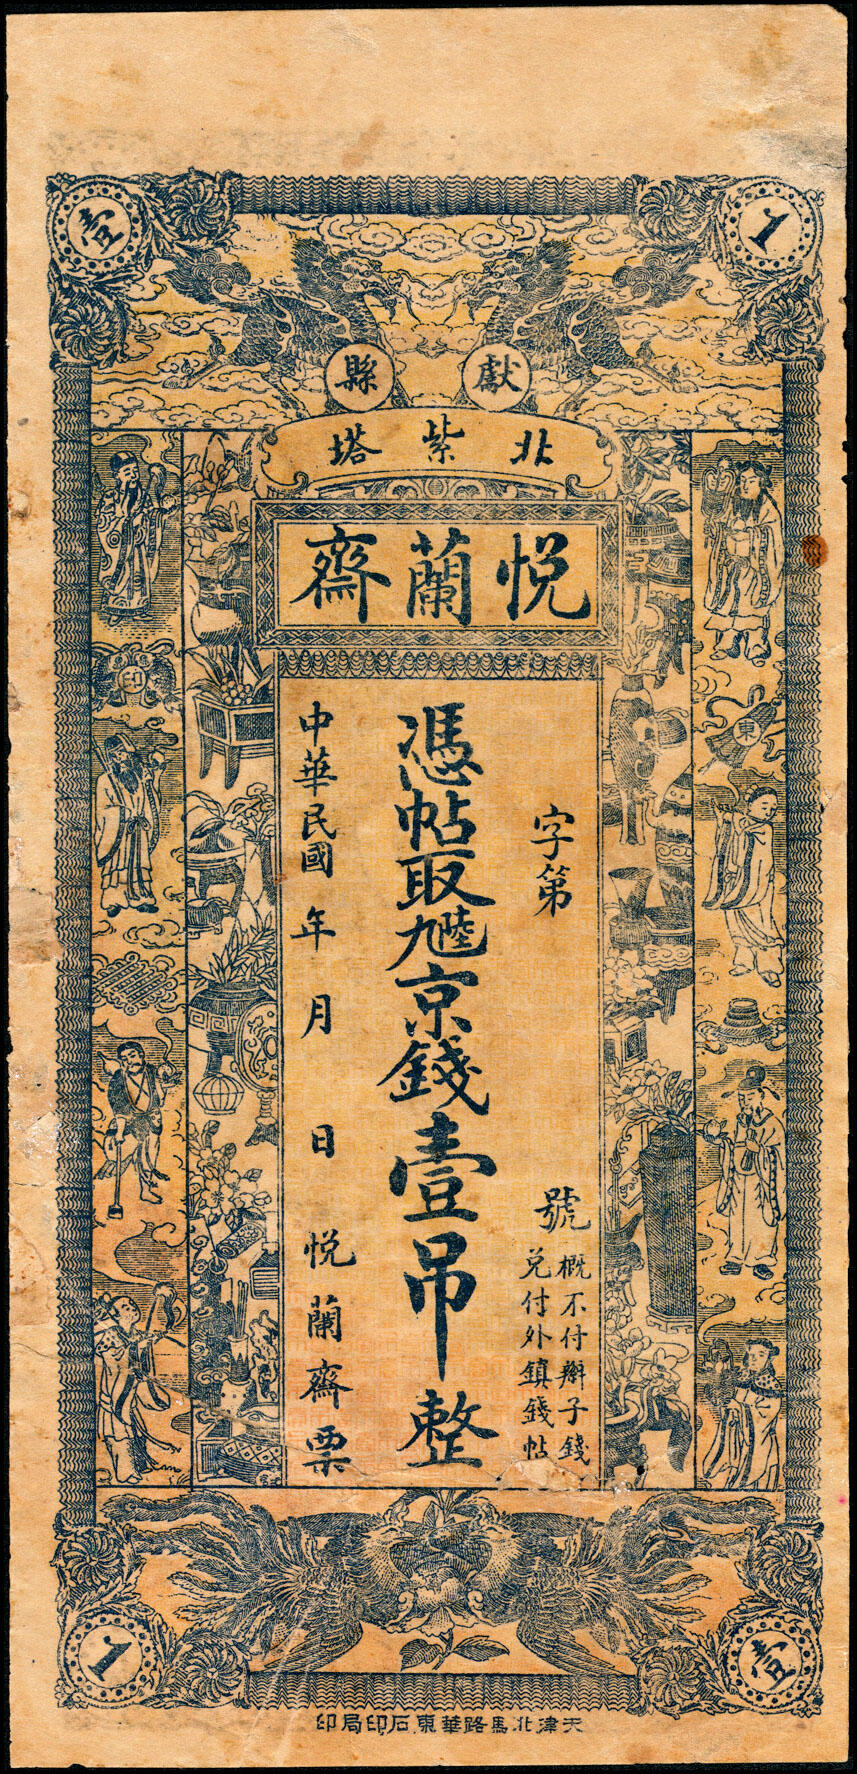 壹 1
獻縣
北紫塔
悅蘭齋
字第
號
概不付辦子錢
兌付外鎮錢帖
憑帖取九陸京錢壹吊整
中華民國 年 月 日 悅蘭齋票
印
東
1 壹
天津北馬路華東石印局印